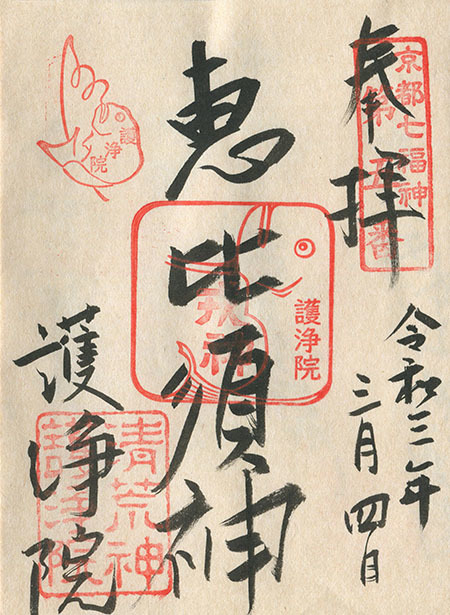 奉拝
京都七福神
第五番
令和三年
三月四日
恵比須神
護浄院
護浄院
護浄院
清荒神
護浄院